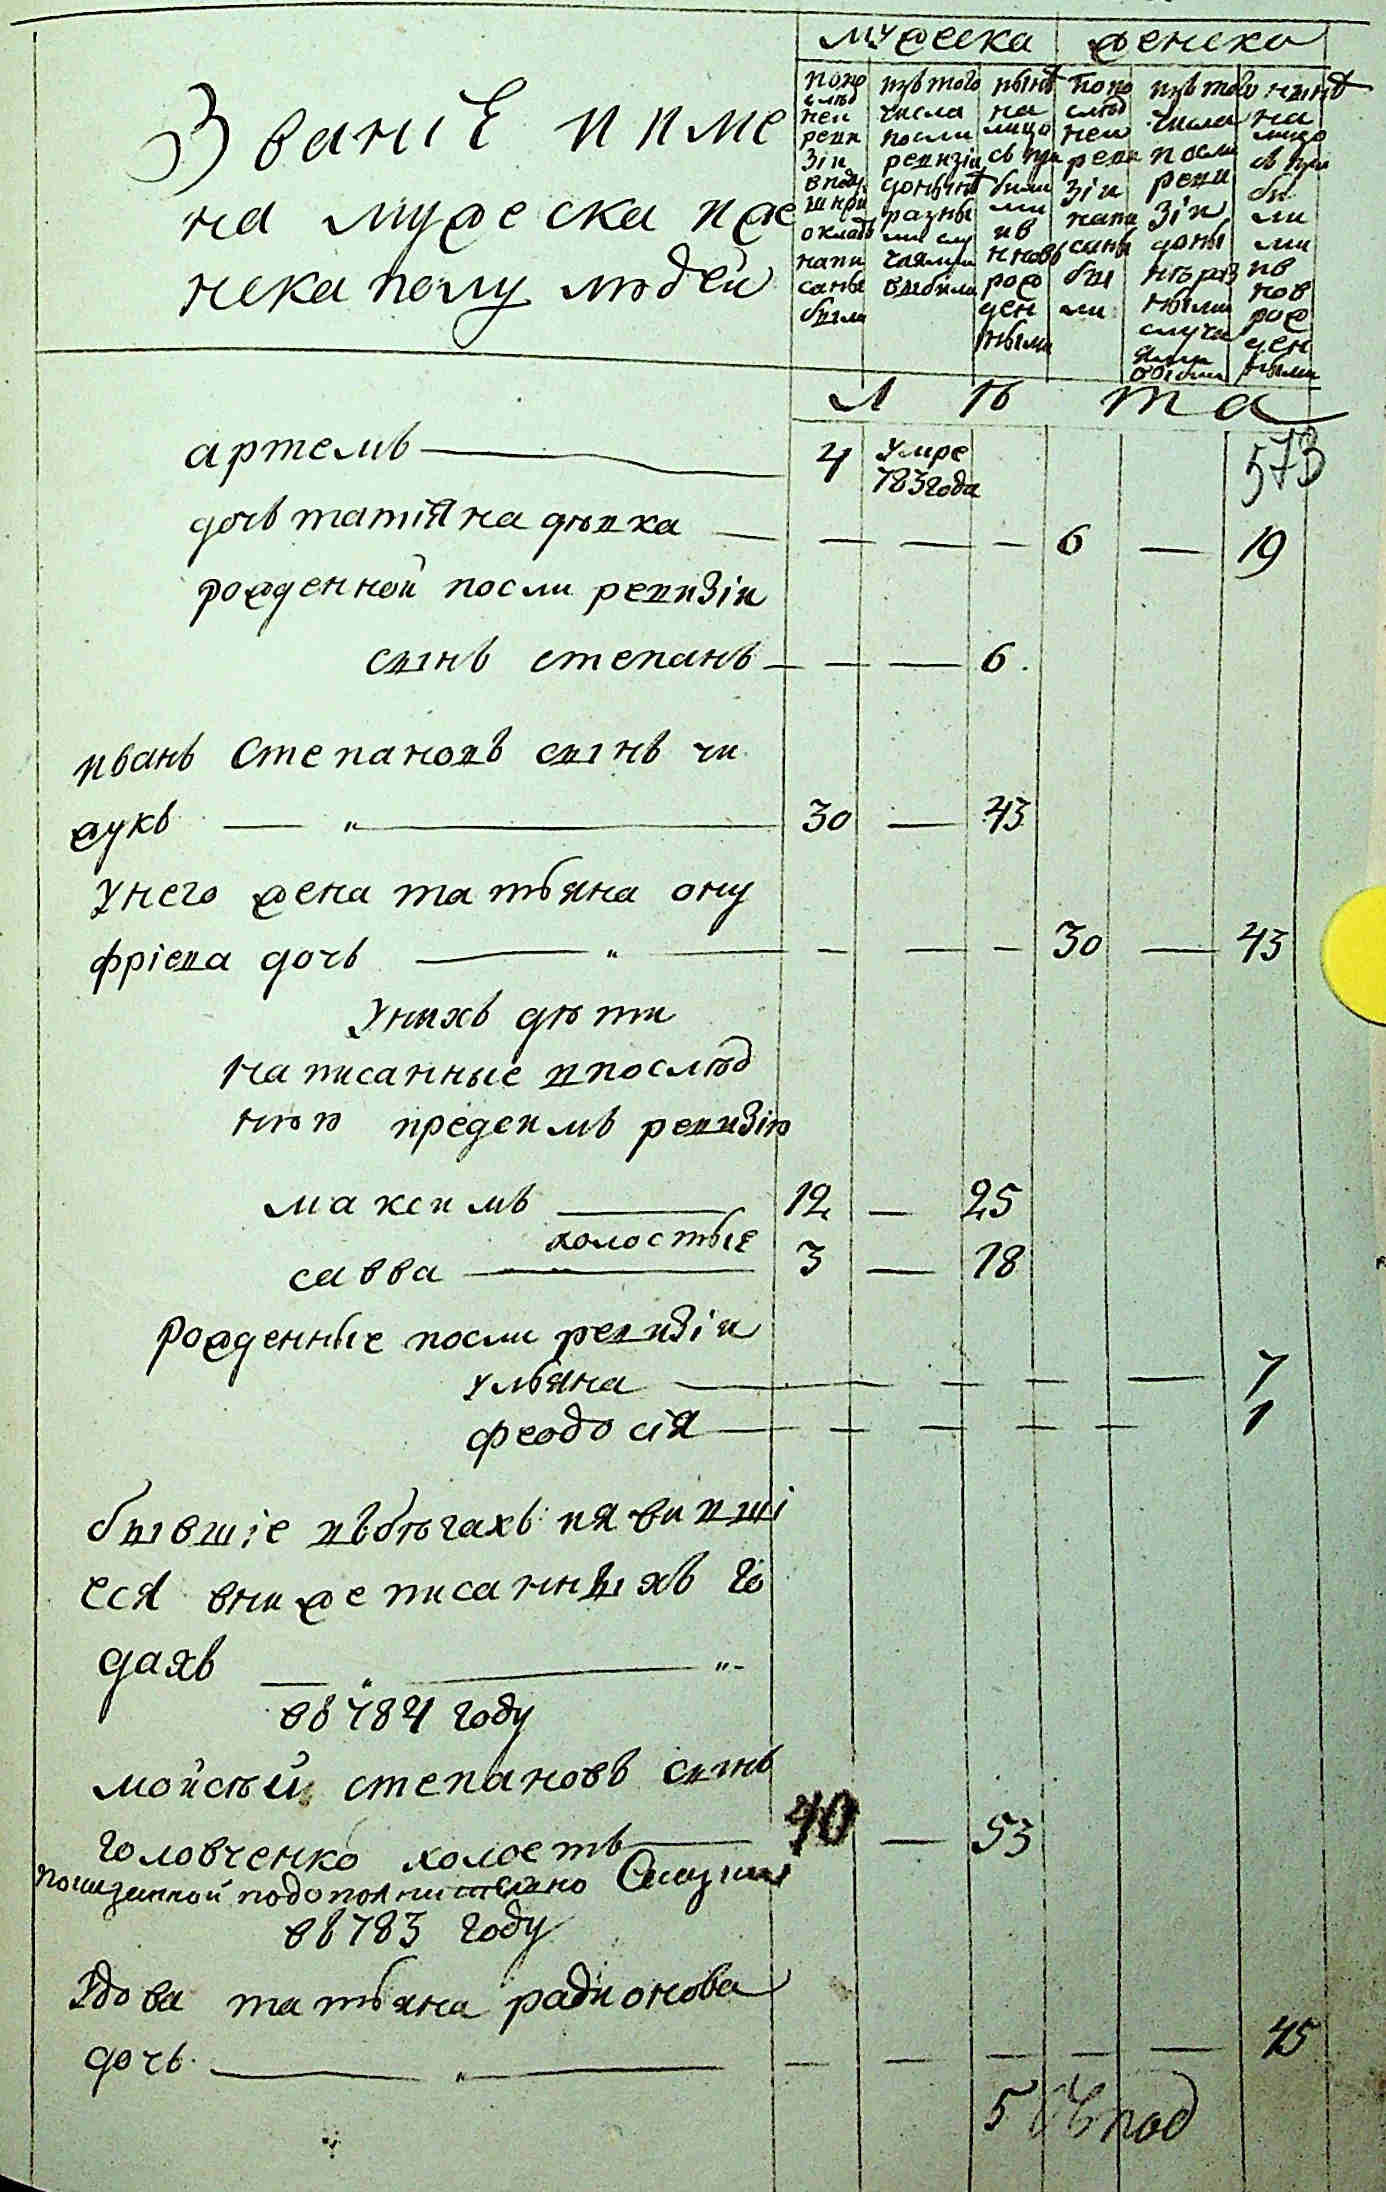 мужеска женско
Званіе и име
на мужеска и же
нска полу людей
попо
след
ней
реви
зіи
в поду
шной
окладъ
напи
саны
были
изъ того
числа
после
ревизіи
донынѣ
разны
ми слу
чаями
выбыло
нынѣ
на
лицо
съ при
были
ми
и в
нновь
рож
ден
ными
попо
след
ней
реви
зіи
напи
саны
бы
ли
изъ того
числа
посли
реви
зіи
доны
нѣ раз
ными
случа
ями
нынѣ
на
лицо
съ при
бы
ли
ми
ив
нов
рож
ден
ными
лѣта
артемъ 4 умре 573
783 года
дочь татіяна дѣвка 6 19
рожденной посли ревизіи
сынъ степанъ 6
иванъ степановъ сынъ чи
жукъ 30 43
у него жена татьяна ону
фріева дочь 30 43
у ныхъ дѣти
написанные впослѣд
нюю предсимъ ревизію
максимъ 12 25
холостые
савва 3 18
рожденные посли ревизіи
ульяна 7
феодосія 1
бывшіе въ бѣгахъ и явивши
еся внижеписанныхъ го
дахъ
въ 784 году
мойсѣй степановъ сынъ
головченко холостъ 40 53
въ 783 году
вдова татьяна радионова
дочь 45
5